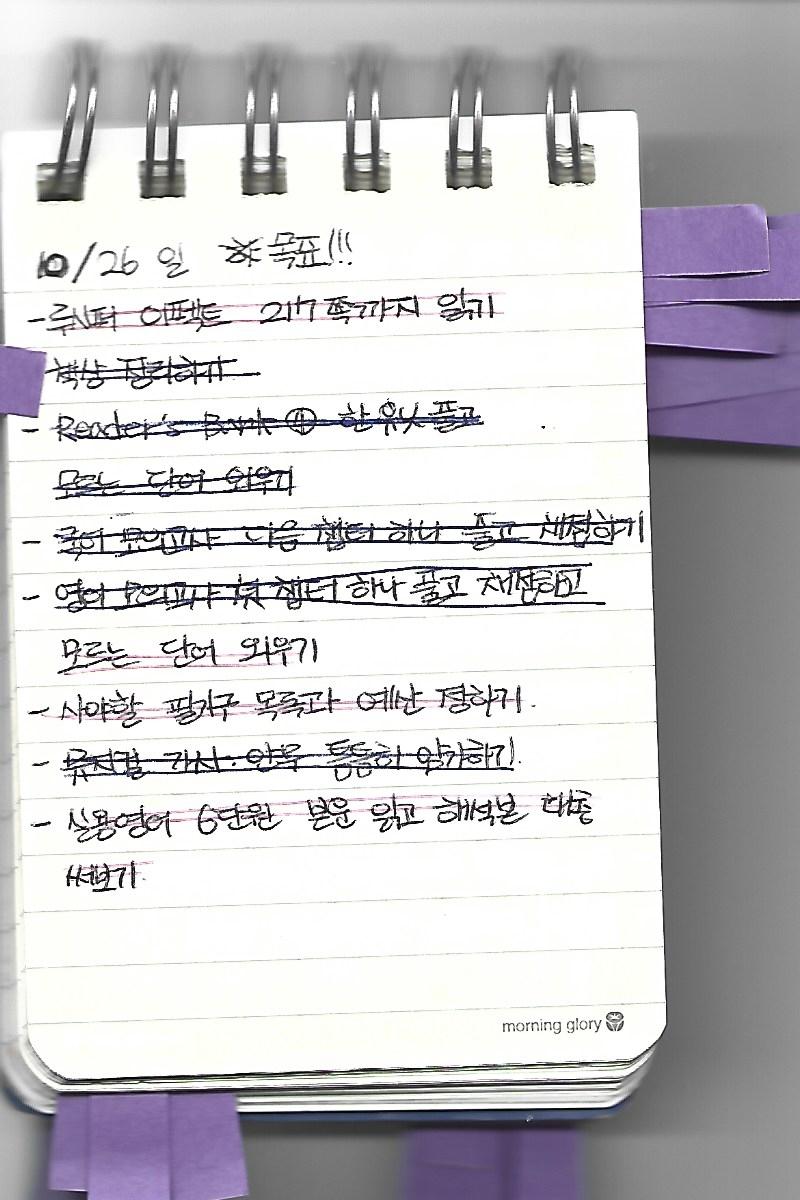 10/26 일 ※목표!!!
- 루시퍼 이펙트 217쪽까지 읽기
책상 정리하기
- Reader's Bank ④ 한 유닛 풀고
모르는 단어 외우기
- 국어 모의고사 다음 챕터 하나 풀고 채점하기
- 영어 모의고사 첫 챕터 하나 풀고 채점하고
모르는 단어 외우기
- 사야할 필기구 목록과 예산 정하기.
- 뮤지컬 가사·안무 틈틈히 암기하기.
- 실용영어 6단원 본문 읽고 해석본 대충
써보기.
morning glory